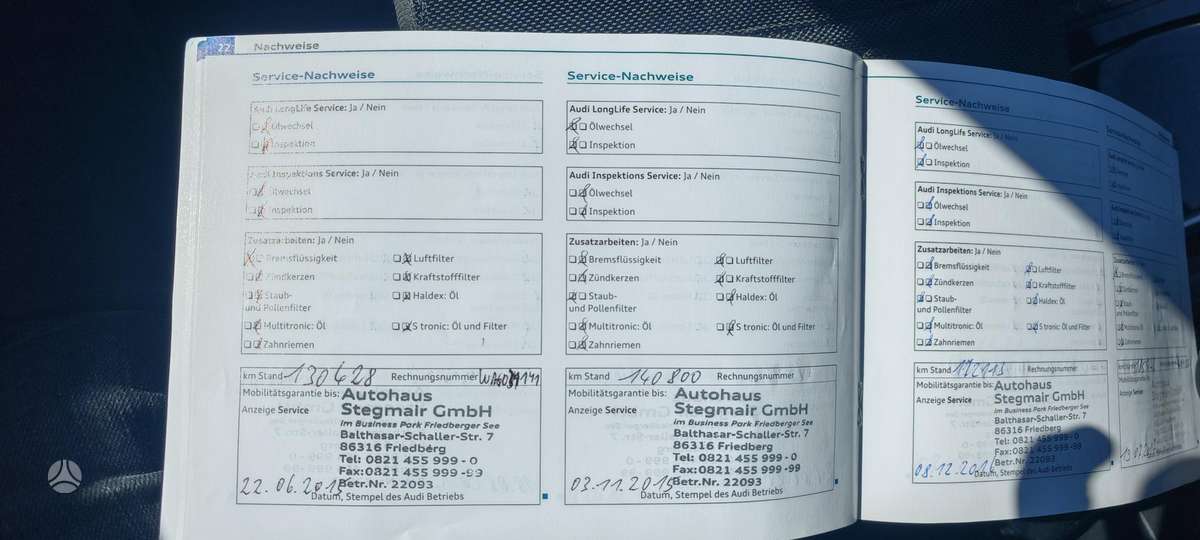 22 Nachweise
Service-Nachweise
Audi LongLife Service: Ja / Nein
Ölwechsel
Inspektion
Audi Inspektions Service: Ja / Nein
Ölwechsel
Inspektion
Zusatzarbeiten: Ja / Nein
Bremsflüssigkeit
Luftfilter
Zündkerzen
Kraftstofffilter
Staub-
und Pollenfilter
Haldex: Öl
Multitronic: Öl
S tronic: Öl und Filter
Zahnriemen
km Stand 130428 Rechnungsnummer
Mobilitätsgarantie bis:
Anzeige Service
Autohaus
Stegmair GmbH
im Business Park Friedberger See
Balthasar-Schaller-Str. 7
86316 Friedberg
Tel: 0821 455 999 - 0
Fax: 0821 455 999 -99
Betr.Nr. 22093
22.06.2015
Datum, Stempel des Audi Betriebs
Service-Nachweise
Audi LongLife Service: Ja / Nein
Ölwechsel
Inspektion
Audi Inspektions Service: Ja / Nein
Ölwechsel
Inspektion
Zusatzarbeiten: Ja / Nein
Bremsflüssigkeit
Luftfilter
Zündkerzen
Kraftstofffilter
Staub-
und Pollenfilter
Haldex: Öl
Multitronic: Öl
S tronic: Öl und Filter
Zahnriemen
km Stand 140800 Rechnungsnummer
Mobilitätsgarantie bis:
Anzeige Service
Autohaus
Stegmair GmbH
im Business Park Friedberger See
Balthasar-Schaller-Str. 7
86316 Friedberg
Tel: 0821 455 999 - 0
Fax: 0821 455 999 -99
Betr.Nr. 22093
03.11.2015
Datum, Stempel des Audi Betriebs
Service-Nachweise
Audi LongLife Service: Ja / Nein
Ölwechsel
Inspektion
Audi Inspektions Service: Ja / Nein
Ölwechsel
Inspektion
Zusatzarbeiten: Ja / Nein
Bremsflüssigkeit
Luftfilter
Zündkerzen
Kraftstofffilter
Staub-
und Pollenfilter
Haldex: Öl
Multitronic: Öl
S tronic: Öl und Filter
Zahnriemen
km Stand Rechnungsnummer
Mobilitätsgarantie bis:
Anzeige Service
Autohaus
Stegmair GmbH
im Business Park Friedberger See
Balthasar-Schaller-Str. 7
86316 Friedberg
Tel: 0821 455 999 - 0
Fax: 0821 455 999 -99
Betr.Nr. 22093
08.12.2016
Datum, Stempel des Audi Betriebs